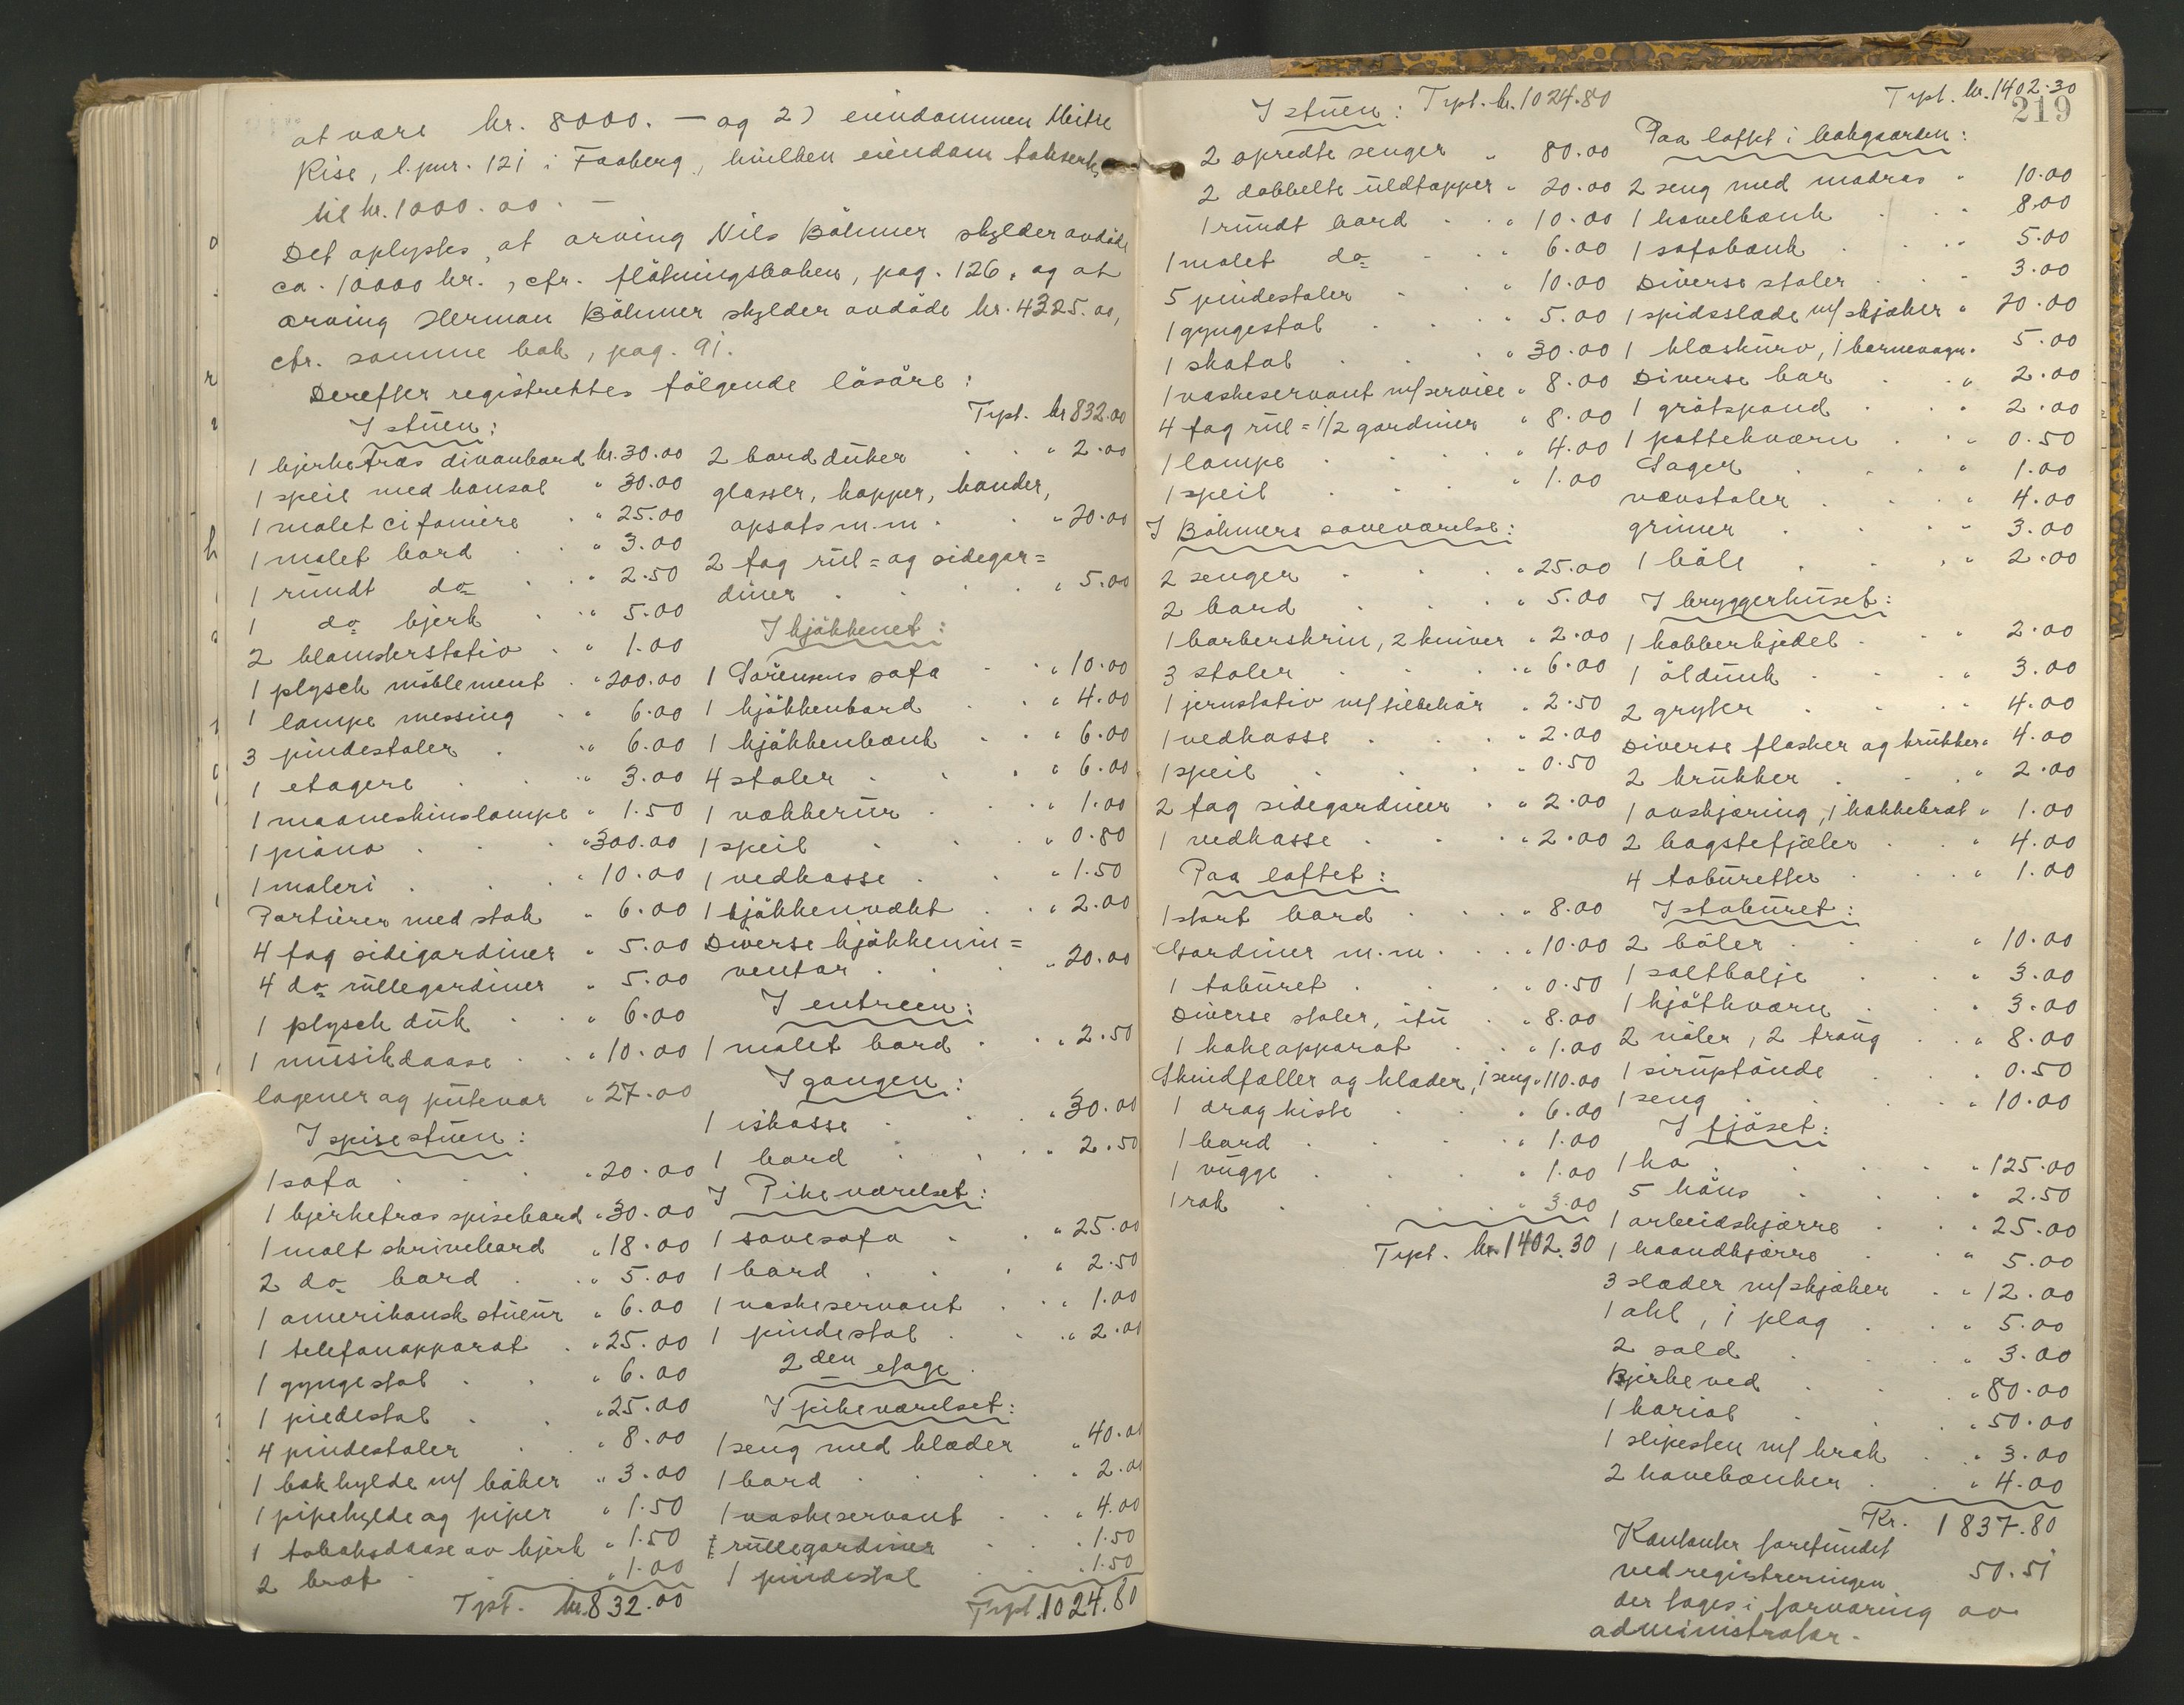 at være kr. 8000. — og 2) eiendommen Meitre
Rise, l.pnr. 121 i Faaberg, hvilken eiendom takserts
til kr. 1000.00. —
Det oplystes, at arving Nils Böhmer skylder avdöde
ca. 10000 kr., cfr. flötningsboken, pag. 126, og at
arving Herman Böhmer skylder avdöde kr. 4325.00,
cfr. samme bok, pag. 91.
Derefter registrertes fölgende lösöre:
I stuen:
1 bjerketræs divanbord kr. 30.00
1 speil med konsol " 30.00
1 malet cifoniere " 25.00
1 malet bord " 3.00
1 rundt do " 2.50
1 do bjerk " 5.00
2 blomsterstativ " 1.00
1 plysch möblement " 200.00
1 lampe messing " 6.00
3 pindestoler " 6.00
1 etagere " 3.00
1 maaneskinslampe " 1.50
1 piano " 300.00
1 maleri " 10.00
Portierer med stok " 6.00
4 fag sidegardiner " 5.00
4 do rullegardiner " 5.00
1 plysch duk " 6.00
1 musikdaase " 10.00
lagener og putevar " 27.00
I spisestuen:
1 sofa " 20.00
1 bjerketræs spisebord " 30.00
1 malt skrivebord " 18.00
2 do bord " 5.00
1 amerikansk stueur " 6.00
1 telefonapparat " 25.00
1 gyngestol " 6.00
1 piedestal " 25.00
4 pindestoler " 8.00
1 bokhylde m/ böker " 3.00
1 pipehylde og piper " 1.50
1 tobaksdaase av bjerk " 1.50
2 bræt " 1.00
Trpt. kr. 832.00
Trpt. kr 832.00
2 bordduker " 2.00
glasser, kopper, kander,
opsats m.m. " 20.00
2 fag rul= og sidegar=
diner " 5.00
I kjökkenet:
1 Sörensens sofa " 10.00
1 kjökkenbord " 4.00
1 kjökkenbænk " 6.00
4 stoler " 6.00
1 vækkerur " 1.00
1 speil " 0.80
1 vedkasse " 1.50
1 kjökkenvækt " 2.00
Diverse kjökkenin=
ventar " 20.00
I entreen:
1 malet bord " 2.50
I gangen:
1 iskasse " 30.00
1 bord " 2.50
I Pikeværelset:
1 sovesofa " 25.00
1 bord " 2.50
1 vaskeservant " 1.00
1 pindestol " 2.00
2den etage.
I pikeværelset:
1 seng med klæder " 40.00
1 bord " 2.00
1 vaskeservant " 4.00
rullegardiner " 1.50
1 pindestol " 1.50
Trpt. 1024.80
I stuen: Trpt. kr. 1024.80
2 opredte senger " 80.00
2 dobbelte uldtæpper " 20.00
1 rundt bord " 10.00
1 malet do " 6.00
5 pindestoler " 10.00
1 gyngestol " 5.00
1 skatol " 30.00
1 vaskeservant m/ service " 8.00
4 fag rul= 1/2 gardiner " 8.00
1 lampe " 4.00
1 speil " 1.00
I Böhmers soveværelse:
2 senger " 25.00
2 bord " 5.00
1 barberskrin, 2 kniver " 2.00
3 stoler " 6.00
1 jernstativ m/ tilbehör " 2.50
1 vedkasse " 2.00
1 speil " 0.50
2 fag sidegardiner " 2.00
1 vedkasse " 2.00
Paa loftet:
1 stort bord " 8.00
Gardiner m.m. " 10.00
1 taburet " 0.50
Diverse stoler, itu " 8.00
1 kokeapparat " 1.00
Skindfæller og klæder, 1 seng " 110.00
1 dragkiste " 6.00
1 bord " 1.00
1 vugge " 1.00
1 rok " 3.00
Trpt. kr. 1402.30
Trpt. kr. 1402.30
219
Paa loftet i bakgaarden:
2 seng med madras " 10.00
1 hövelbænk " 8.00
1 sofabænk " 5.00
Diverse stoler " 3.00
1 spidsslæde m/ skjæker " 20.00
1 klæskurv, 1 barnevogn " 5.00
Diverse kar " 2.00
1 grötspand " 2.00
1 pottekværn " 0.50
Sager " 1.00
vævstoler " 4.00
grimer " 3.00
1 böle " 2.00
I bryggerhuset:
1 kobberkjedel " 2.00
1 öldunk " 3.00
2 gryter " 4.00
Diverse flasker og krukker " 4.00
2 krukker " 2.00
1 avskjæring, 1 hakkebræt " 1.00
2 bagstefjæler " 4.00
4 taburetter " 1.00
I staburet:
2 böler " 10.00
1 saltbalje " 3.00
1 kjötkværn " 3.00
2 nåler, 2 traug " 8.00
1 siruptönde " 0.50
1 seng " 10.00
I fjöset:
1 ko " 125.00
5 höns " 2.50
1 arbeidskjærre " 25.00
1 haandkjærre " 5.00
3 slæder m/ skjæker " 12.00
1 ahl, 1 plog " 5.00
2 sald " 3.00
Bjerkeved " 80.00
1 kariol " 50.00
1 slipesten m/ krak " 3.00
2 havebænker " 4.00
Kr. 1837.80
Kontanter forefundet
ved registreringen 50.51
der tages i forvaring av
administrator.